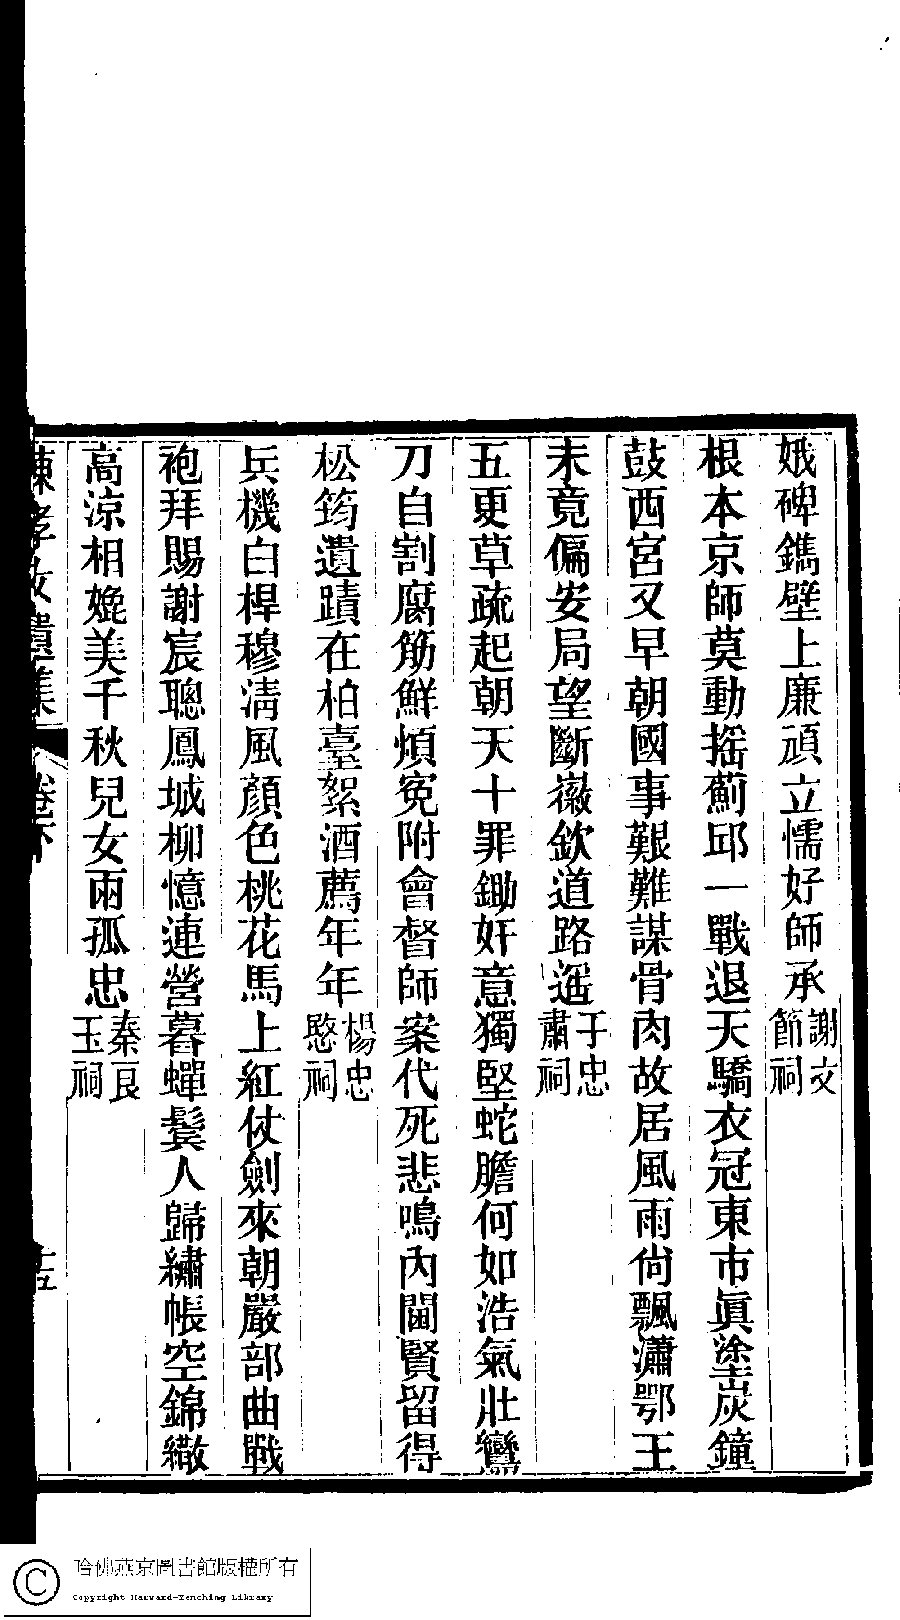 娥碑鐫壁上廉頑立懦好師承謝文節祠
根本京師莫動搖薊邱一戰退天驕衣冠東市眞塗炭鐘
鼓西宮又早朝國事艱難謀骨肉故居風雨尙飄瀟鄂王
未竟偏安局望斷嶶欽道路遥于忠肅祠
五更草疏起朝天十罪鋤奸意獨堅蛇膽何如浩氣壯鸞
刀自割腐筋鮮煩寃附會督師案代死悲鳴內閫賢留得
松筠遺蹟在柏臺絮酒薦年年楊忠愍祠
兵機白桿穆淸風顏色桃花馬上紅仗劍來朝嚴部曲戰
袍拜賜謝宸聰鳳城柳憶連營暮蟬鬓人歸繡帳空錦繖
高涼相媲美千秋兒女兩孤忠秦良玉祠
陳孝女遺集 卷下 十五
哈佛燕京圖書館版權所有
Copyright Harvard-Yenching Library